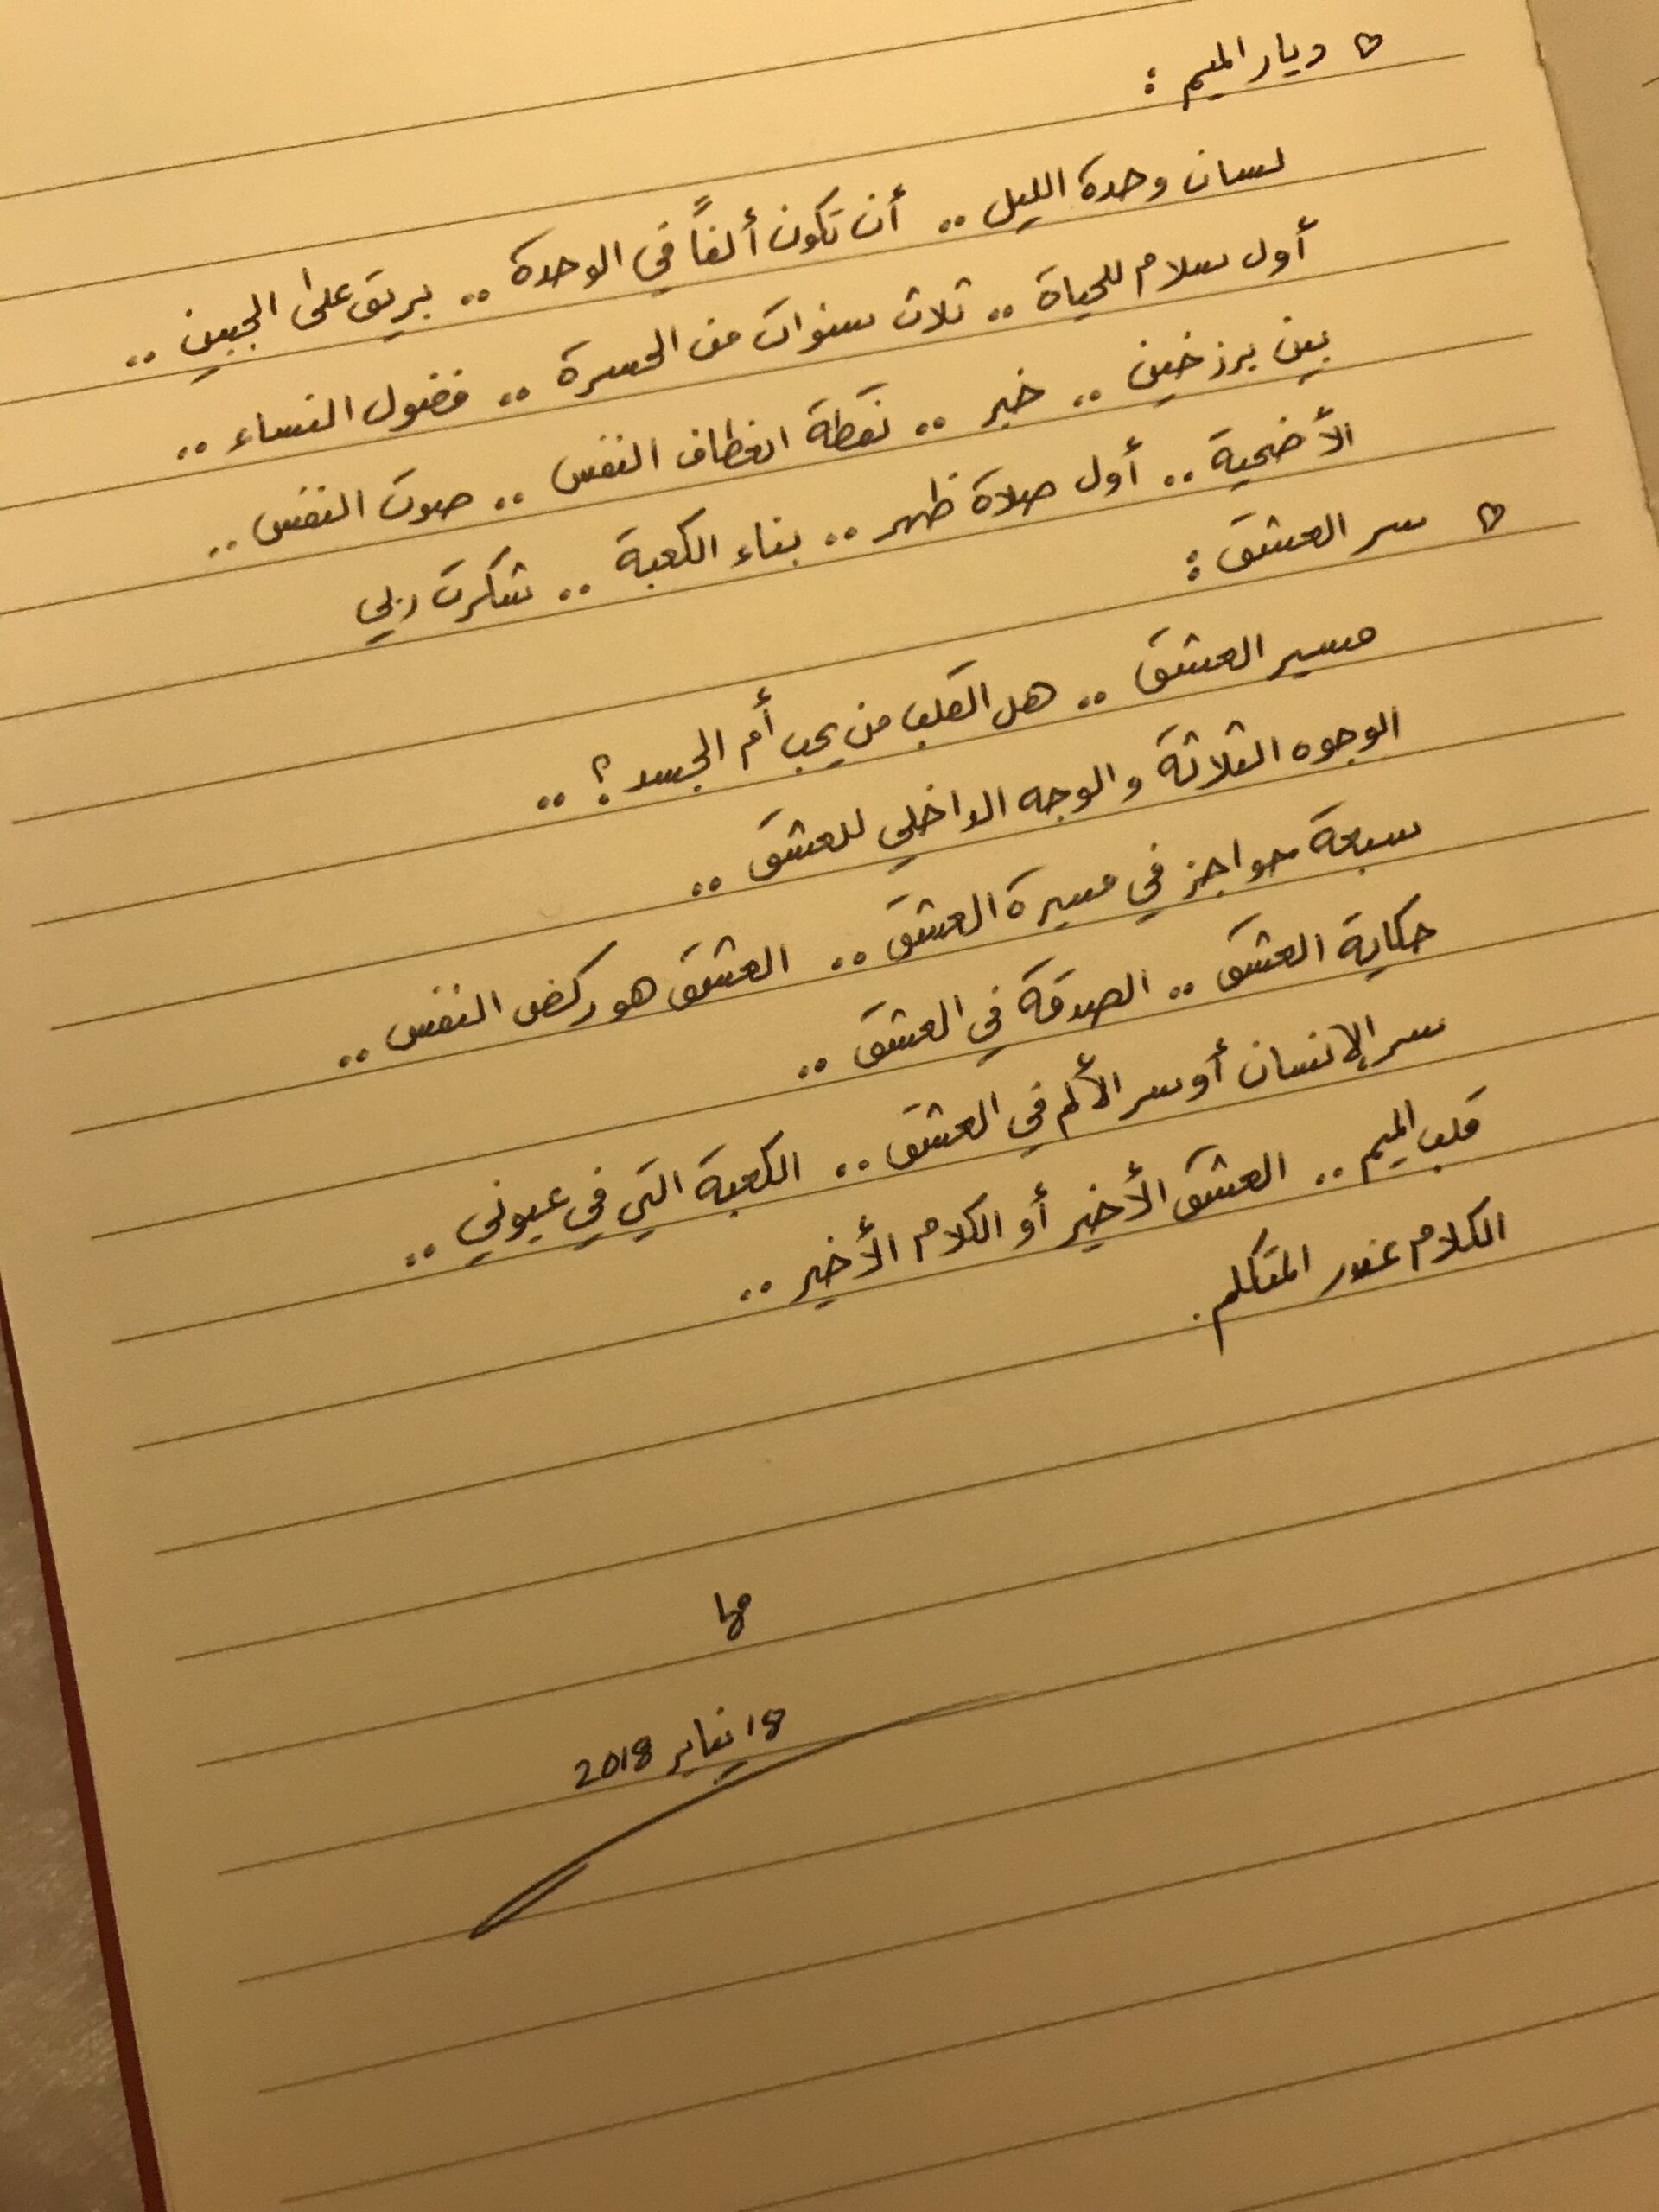 ♡ ديار الميم :
لسان وحدة الليل .. أن تكون ألفاً في الوحدة .. بريق على الجبين ..
أول سلام للحياة .. ثلاث سنوات من الحسرة .. فضول النساء ..
بين برزخين .. خبر .. نقطة انعطاف النفس .. صوت النفس ..
الأضحية .. أول صلاة ظهر .. بناء الكعبة .. شكرت ربي
♡ سر العشق :
مسير العشق .. هل القلب من يحب أم الجسد ؟ ..
الوجوه الثلاثة والوجه الداخلي للعشق ..
سبعة حواجز في مسيرة العشق .. العشق هو ركض النفس ..
حكاية العشق .. الصدقة في العشق ..
سر الإنسان أو سر الألم في العشق .. الكعبة التي في عيوني ..
قلب الميم .. العشق الأخير أو الكلام الأخير ..
الكلام عندر المتكلم .
مها
18 يناير 2018